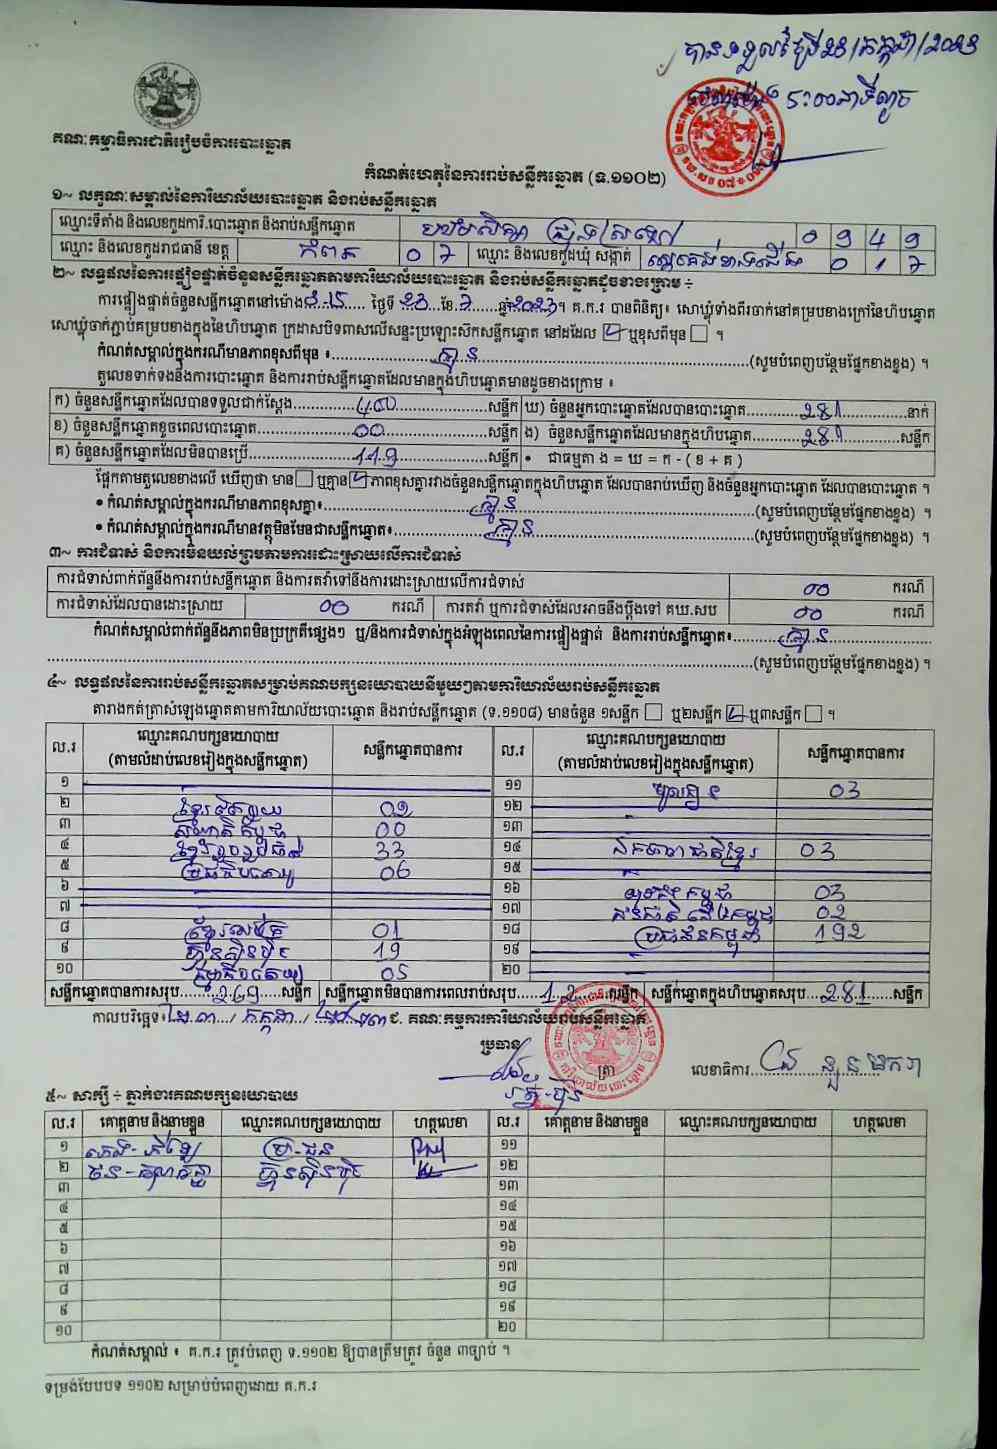 បានទទួលថ្ងៃទី23/កក្កដា/2023
5:00នាទីល្ងាច
គណៈកម្មាធិការជាតិរៀបចំការបោះឆ្នោត
កំណត់ហេតុនៃការរាប់សន្លឹកឆ្នោត (ទ.១១០២)
១~ លក្ខណៈសម្គាល់នៃការិយាល័យបោះឆ្នោត និងរាប់សន្លឹកឆ្នោត
ឈ្មោះទីតាំង និងលេខកូដការិ.បោះឆ្នោត និងរាប់សន្លឹកឆ្នោត 0 9 4 9
ឈ្មោះ និងលេខកូដរាជធានី ខេត្ត កំពត 0 7 ឈ្មោះ និងលេខកូដឃុំ សង្កាត់ 0 1 7
២~ លទ្ធផលនៃការផ្ទៀងផ្ទាត់ចំនួនសន្លឹកឆ្នោតតាមការិយាល័យបោះឆ្នោត និងរាប់សន្លឹកឆ្នោតដូចខាងក្រោម ÷
ការផ្ទៀងផ្ទាត់ចំនួនសន្លឹកឆ្នោតនៅម៉ោង ថ្ងៃទី 23 ខែ 7 ឆ្នាំ 2023។ គ.ក.រ បានពិនិត្យ៖ សោឃ្លុំទាំងពីរចាក់នៅគម្របខាងក្រៅនៃហិបឆ្នោត
សោឃ្លុំចាក់ភ្ជាប់គម្របខាងក្នុងនៃហិបឆ្នោត ក្រដាសបិទពាសលើសន្ទះប្រឡោះស៊កសន្លឹកឆ្នោត នៅដដែល ឬខុសពីមុន ។
កំណត់សម្គាល់ក្នុងករណីមានភាពខុសពីមុន ៖ គ្មាន (សូមបំពេញបន្ថែមផ្នែកខាងខ្នង) ។
តួលេខទាក់ទងនឹងការបោះឆ្នោត និងការរាប់សន្លឹកឆ្នោតដែលមានក្នុងហិបឆ្នោតមានដូចខាងក្រោម ៖
ក) ចំនួនសន្លឹកឆ្នោតដែលបានទទួលជាក់ស្តែង 400 សន្លឹក ឃ) ចំនួនអ្នកបោះឆ្នោតដែលបានបោះឆ្នោត 281 នាក់
ខ) ចំនួនសន្លឹកឆ្នោតខូចពេលបោះឆ្នោត 00 សន្លឹក ង) ចំនួនសន្លឹកឆ្នោតដែលមានក្នុងហិបឆ្នោត 281 សន្លឹក
គ) ចំនួនសន្លឹកឆ្នោតដែលមិនបានប្រើ 119 សន្លឹក • ជាធម្មតា ង = ឃ = ក - ( ខ + គ )
ផ្អែកតាមតួលេខខាងលើ ឃើញថា មាន ឬគ្មាន ភាពខុសគ្នារវាងចំនួនសន្លឹកឆ្នោតក្នុងហិបឆ្នោត ដែលបានរាប់ឃើញ និងចំនួនអ្នកបោះឆ្នោត ដែលបានបោះឆ្នោត ។
• កំណត់សម្គាល់ក្នុងករណីមានភាពខុសគ្នា៖ គ្មាន (សូមបំពេញបន្ថែមផ្នែកខាងខ្នង) ។
• កំណត់សម្គាល់ក្នុងករណីមានវត្ថុមិនមែនជាសន្លឹកឆ្នោត៖ គ្មាន (សូមបំពេញបន្ថែមផ្នែកខាងខ្នង) ។
៣~ ការជំទាស់ និងការមិនយល់ព្រមតាមការដោះស្រាយលើការជំទាស់
ការជំទាស់ពាក់ព័ន្ធនឹងការរាប់សន្លឹកឆ្នោត និងការតវ៉ាទៅនឹងការដោះស្រាយលើការជំទាស់ 00 ករណី
ការជំទាស់ដែលបានដោះស្រាយ 00 ករណី ការតវ៉ា ឬការជំទាស់ដែលអាចនឹងប្តឹងទៅ គឃ.សប 00 ករណី
កំណត់សម្គាល់ពាក់ព័ន្ធនឹងភាពមិនប្រក្រតីផ្សេងៗ ឬ/និងការជំទាស់ក្នុងអំឡុងពេលនៃការផ្ទៀងផ្ទាត់ និងការរាប់សន្លឹកឆ្នោត៖ គ្មាន
(សូមបំពេញបន្ថែមផ្នែកខាងខ្នង) ។
៤~ លទ្ធផលនៃការរាប់សន្លឹកឆ្នោតសម្រាប់គណបក្សនយោបាយនីមួយៗតាមការិយាល័យរាប់សន្លឹកឆ្នោត
តារាងកត់ត្រាសំឡេងឆ្នោតតាមការិយាល័យបោះឆ្នោត និងរាប់សន្លឹកឆ្នោត (ទ.១១០៨) មានចំនួន ១សន្លឹក ឬ២សន្លឹក ឬ៣សន្លឹក ។
ល.រ ឈ្មោះគណបក្សនយោបាយ (តាមលំដាប់លេខរៀងក្នុងសន្លឹកឆ្នោត) សន្លឹកឆ្នោតបានការ ល.រ ឈ្មោះគណបក្សនយោបាយ (តាមលំដាប់លេខរៀងក្នុងសន្លឹកឆ្នោត) សន្លឹកឆ្នោតបានការ
១ ១១ 03
២ 02 ១២
៣ 00 ១៣
៤ 33 ១៤ ឯកភាពជាតិខ្មែរ 03
៥ ប្រជាធិបតេយ្យ 06 ១៥
៦ ១៦ យុវជនកម្ពុជា 03
៧ ១៧ 02
៨ 01 ១៨ ប្រជាជនកម្ពុជា 192
៩ ហ៊្វុនស៊ិនប៉ិច 19 ១៩
១០ 05 ២០
សន្លឹកឆ្នោតបានការសរុប 269 សន្លឹក សន្លឹកឆ្នោតមិនបានការពេលរាប់សរុប 12 សន្លឹក សន្លឹកឆ្នោតក្នុងហិបឆ្នោតសរុប 281 សន្លឹក
កាលបរិច្ឆេទ៖ ២៣/ កក្កដា / ២០២៣ គណៈកម្មការការិយាល័យរាប់សន្លឹកឆ្នោត
ប្រធាន
ត្រា លេខាធិការ
៥~ សាក្សី ÷ ភ្នាក់ងារគណបក្សនយោបាយ
ល.រ គោត្តនាម និងនាមខ្លួន ឈ្មោះគណបក្សនយោបាយ ហត្ថលេខា ល.រ គោត្តនាម និងនាមខ្លួន ឈ្មោះគណបក្សនយោបាយ ហត្ថលេខា
១ ប្រ-ជន ១១
២ ហ៊្វុនស៊ិនប៉ិច ១២
៣ ១៣
៤ ១៤
៥ ១៥
៦ ១៦
៧ ១៧
៨ ១៨
៩ ១៩
១០ ២០
កំណត់សម្គាល់ ៖ គ.ក.រ ត្រូវបំពេញ ទ.១១០២ ឱ្យបានត្រឹមត្រូវ ចំនួន ៣ច្បាប់ ។
ទម្រង់បែបបទ ១១០២ សម្រាប់បំពេញដោយ គ.ក.រ